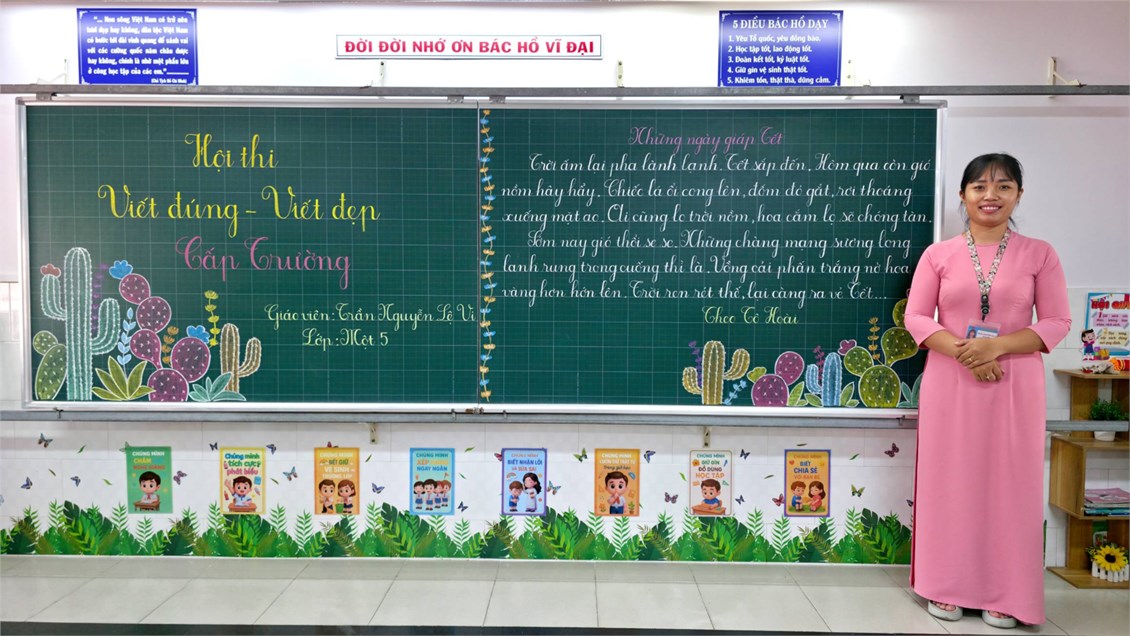 "... Non sông Việt Nam có trở nên
tươi đẹp hay không, dân tộc Việt Nam
có bước tới đài vinh quang để sánh vai
với các cường quốc năm châu được
hay không, chính là nhờ một phần lớn
ở công học tập của các em."
(Chủ Tịch Hồ Chí Minh)
ĐỜI ĐỜI NHỚ ƠN BÁC HỒ VĨ ĐẠI
5 ĐIỀU BÁC HỒ DẠY
1. Yêu Tổ quốc, yêu đồng bào.
2. Học tập tốt, lao động tốt.
3. Đoàn kết tốt, kỷ luật tốt.
4. Giữ gìn vệ sinh thật tốt.
5. Khiêm tốn, thật thà, dũng cảm.
Hội thi
Viết đúng - Viết đẹp
Cấp Trường
Giáo viên: Trần Nguyễn Lệ Vi
Lớp: Một 5
Những ngày giáp Tết
Trời ấm lại pha lành lạnh. Tết sắp đến. Hôm qua còn gió
nồm hây hẩy. Chiếc lá ổi cong lên, đốm đỏ gắt, rơi thoáng
xuống mặt ao. Ai cũng lo trời nồm, hoa cắm lọ sẽ chóng tàn.
Sớm nay gió thổi se se. Những chàng mạng sương long
lanh rung trong cuống thì là. Vồng cải phấn trắng nở hoa
vàng hơn hớn lên. Trời rơn rét thế, lại càng ra vẻ Tết...
Theo Tô Hoài
CHÚNG MÌNH
CHĂM
CHÚNG MÌNH
tích cực
phát biểu
CHÚNG MÌNH
BIẾT GIỮ
VỆ SINH
CHÚNG MÌNH
XẾP
NGAY NGẮN
CHÚNG MÌNH
BIẾT NHẬN LỖI
VÀ SỬA SAI
CHÚNG MÌNH
Trong giờ học
CHÚNG MÌNH
GIỮ GÌN
ĐỒ DÙNG
HỌC TẬP
CHÚNG MÌNH
BIẾT
CHIA SẺ
VỚI BẠN BÈ